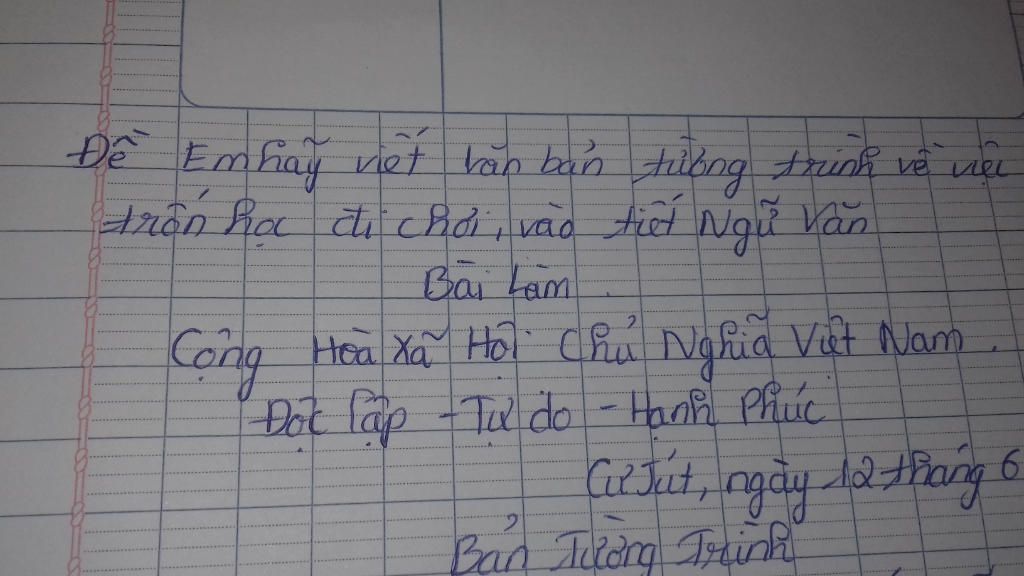 Đề Em hãy viết văn bản tường trình về việc
trốn học đi chơi, vào tiết Ngữ Văn
Bài Làm.
Cộng Hòa Xã Hội Chủ Nghĩa Việt Nam.
Độc lập - Tự do - Hạnh Phúc
Cư Jút, ngày 12 tháng 6
Bản Tường Trình